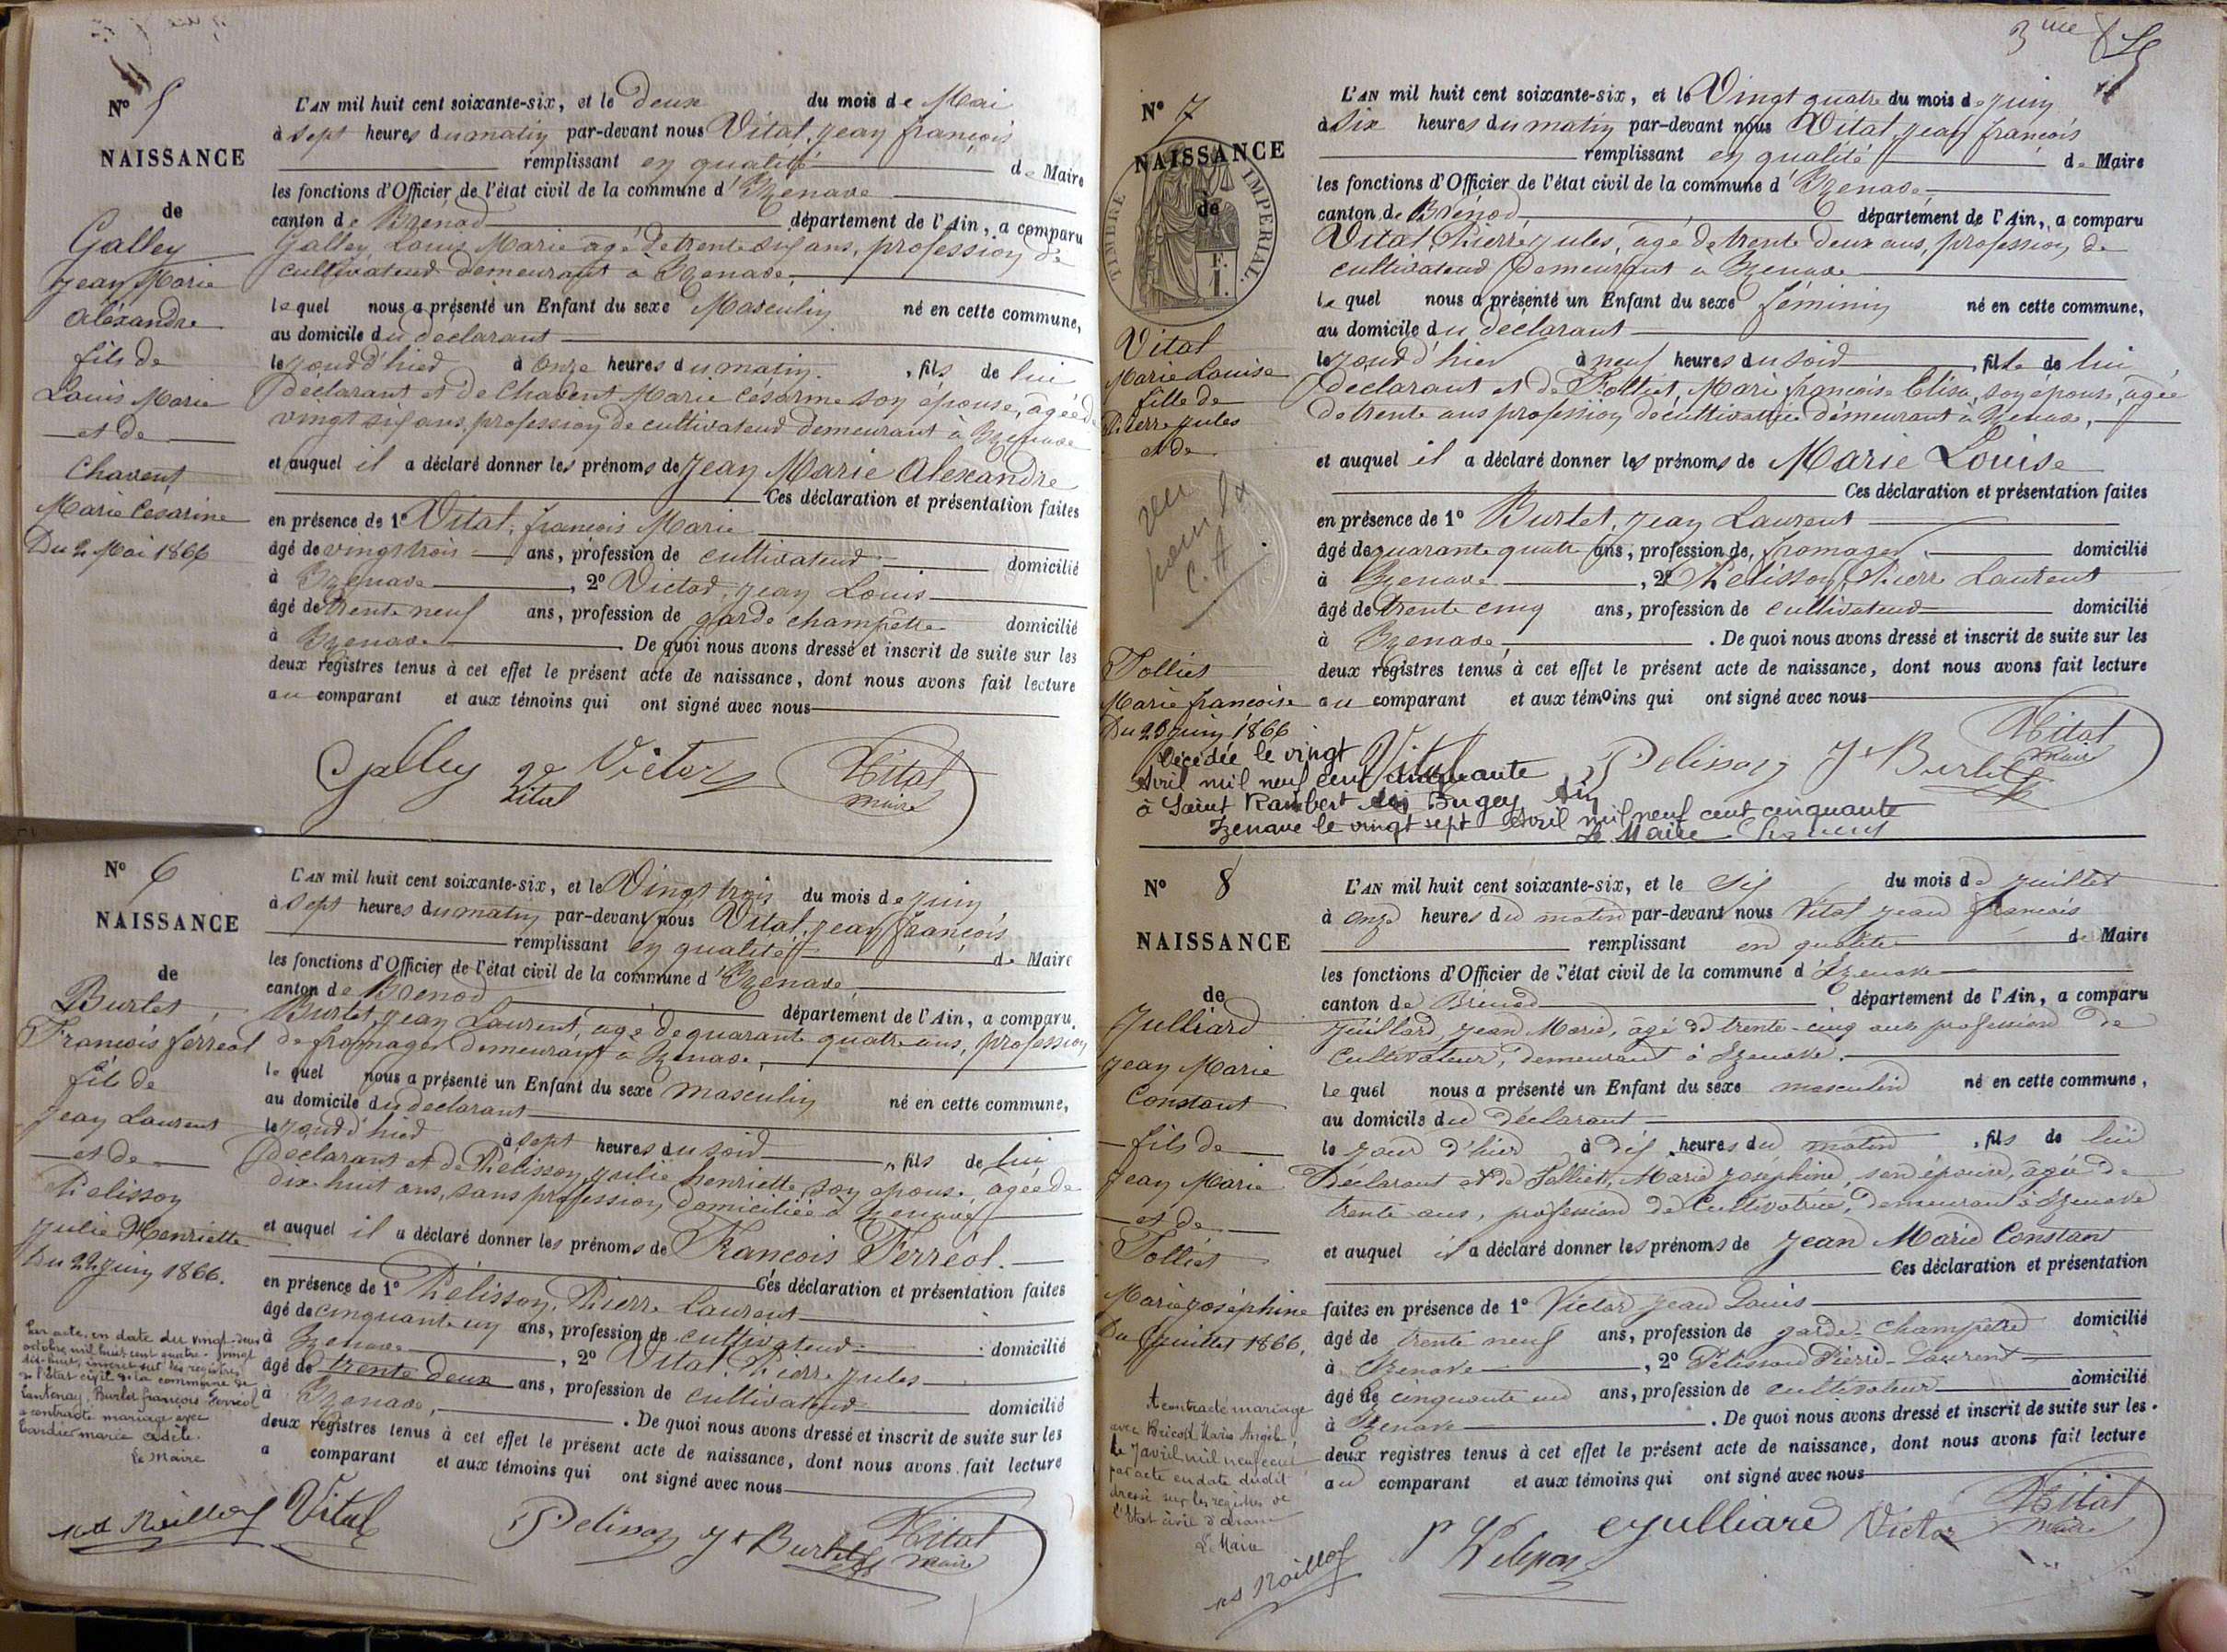 N° 5
NAISSANCE
de
Galley
Jean Marie
Aléxandre
fils de
Louis Marie
et de
Chavent
Marie Césarine
Du 2 Mai 1866
L'AN mil huit cent soixante-six, et le Deux du mois de Mai
à sept heures du matin par-devant nous Vital, Jean françois
remplissant en qualité de Maire
les fonctions d'Officier de l'état civil de la commune d'Izenave
canton de Brénod département de l'Ain, a comparu
Galley, Louis Marie âgé de trente ans, profession de
cultivateur demeurant à Izenave.
lequel nous a présenté un Enfant du sexe Masculin né en cette commune,
au domicile du déclarant
le jour d'hier à onze heures du matin. , fils de lui
déclarant et de Chavent Marie Césarine son épouse, âgée de
vingt six ans, profession de cultivateur demeurant à Izenave
et auquel il a déclaré donner les prénoms de Jean Marie Alexandre
Ces déclaration et présentation faites
en présence de 1° Vital, françois Marie
âgé de vingt trois ans, profession de cultivateur domicilié
à Izenave , 2° Victor, Jean Louis
âgé de trente neuf ans, profession de garde champêtre domicilié
à Izenave . De quoi nous avons dressé et inscrit de suite sur les
deux registres tenus à cet effet le présent acte de naissance, dont nous avons fait lecture
au comparant et aux témoins qui ont signé avec nous
Galley Victor Vital
Vital maire
N° 6
NAISSANCE
de
Burlet
François ferréol
fils de
Jean Laurent
et de
Pelisson
Julie Henriette
Du 22 Juin 1866.
Par acte en date du vingt-deux
octobre mil huit cent quatre-vingt
dix-huit, inscrit sur les registres
de l'Etat civil de la commune de
Lantenay, Burlet françois Ferréol
a contracté mariage avec
Tardier marie adèle.
Le Maire
L'AN mil huit cent soixante-six, et le Vingt trois du mois de Juin
à sept heures du matin par-devant nous Vital, Jean françois
remplissant en qualité de Maire
les fonctions d'Officier de l'état civil de la commune d'Izenave,
canton de Brénod département de l'Ain, a comparu
Burlet, Jean Laurent, âgé de quarante quatre ans, profession
de fromager demeurant à Izenave,
lequel nous a présenté un Enfant du sexe masculin né en cette commune,
au domicile du déclarant
le jour d'hier à sept heures du soir , fils de lui
déclarant et de Pelisson, Julie henriette, son épouse, âgée de
dix-huit ans, sans profession, domiciliée à Izenave
et auquel il a déclaré donner les prénoms de Francois Ferréol.
Ces déclaration et présentation faites
en présence de 1° Pelisson, Pierre Laurent
âgé de cinquante un ans, profession de cultivateur domicilié
à Izenave , 2° Vital Pierre Jules
âgé de trente deux ans, profession de cultivateur domicilié
à Izenave, . De quoi nous avons dressé et inscrit de suite sur les
deux registres tenus à cet effet le présent acte de naissance, dont nous avons fait lecture
a comparant et aux témoins qui ont signé avec nous
Vital Pelisson Jn Burlet Vital
maire
3me
N° 7
NAISSANCE
de
TIMBRE IMPÉRIAL
1 F.
Vital
Marie Louise
fille de
Pierre Jules
et de
vu
pour la
C. A
Tolliet
Marie françoise
Du 23 Juin 1866
L'AN mil huit cent soixante-six, et le Vingt quatre du mois de Juin
à Six heures du matin par-devant nous Vital, Jean françois
remplissant en qualité de Maire
les fonctions d'Officier de l'état civil de la commune d'Izenave
canton de Brénod, département de l'Ain, a comparu
Vital, Pierre Jules, âgé de trente deux ans, profession de
cultivateur demeurant à Izenave
lequel nous a présenté un Enfant du sexe féminin né en cette commune,
au domicile du déclarant
le jour d'hier à neuf heures du soir , fille de lui
déclarant et de Tolliet, Marie françoise Elisa, son épouse, âgée
de trente ans profession de cultivatrice demeurant à Izenave,
et auquel il a déclaré donner les prénoms de Marie Louise
Ces déclaration et présentation faites
en présence de 1° Burlet, Jean Laurent
âgé de quarante quatre ans, profession de fromager domicilié
à Izenave , 2° Pelisson, Pierre Laurent
âgé de trente cinq ans, profession de cultivateur domicilié
à Izenave, . De quoi nous avons dressé et inscrit de suite sur les
deux registres tenus à cet effet le présent acte de naissance, dont nous avons fait lecture
au comparant et aux témoins qui ont signé avec nous
Vital Pelisson Jn Burlet Vital
maire
Décédée le vingt
Avril mil neuf cent cinquante
à Saint Rambert en Bugey Ain
Izenave le vingt sept Avril mil neuf cent cinquante
Le Maire
N° 8
NAISSANCE
de
Julliard
Jean Marie
Constant
fils de
Jean Marie
et de
Tolliet
Marie Joséphine
Du Juillet 1866.
A contracté mariage
avec Marie Angèle
le 7 avril mil neuf cent
par acte en date dudit
dressé sur les registres de
l'Etat civil d'
Le Maire
L'AN mil huit cent soixante-six, et le Six du mois de Juillet
à onze heures du matin par-devant nous Vital Jean françois
remplissant en qualité de Maire
les fonctions d'Officier de l'état civil de la commune d'Izenave
canton de Brénod département de l'Ain, a comparu
Juillard, Jean Marie, âgé de trente-cinq ans profession de
cultivateur, demeurant à Izenave.
lequel nous a présenté un Enfant du sexe masculin né en cette commune,
au domicile du déclarant
le jour d'hier à dix heures du matin , fils de lui
déclarant et de Tolliet, Marie Joséphine, son épouse, âgée de
trente ans, profession de Cultivatrice, demeurant à Izenave
et auquel il a déclaré donner les prénoms de Jean Marie Constant
Ces déclaration et présentation
faites en présence de 1° Victor Jean Louis
âgé de trente neuf ans, profession de garde-champêtre domicilié
à Izenave , 2° Pelisson Pierre-Laurent
âgé de cinquante un ans, profession de cultivateur domicilié
à Izenave . De quoi nous avons dressé et inscrit de suite sur les
deux registres tenus à cet effet le présent acte de naissance, dont nous avons fait lecture
au comparant et aux témoins qui ont signé avec nous
Julliard Victor Vital
maire